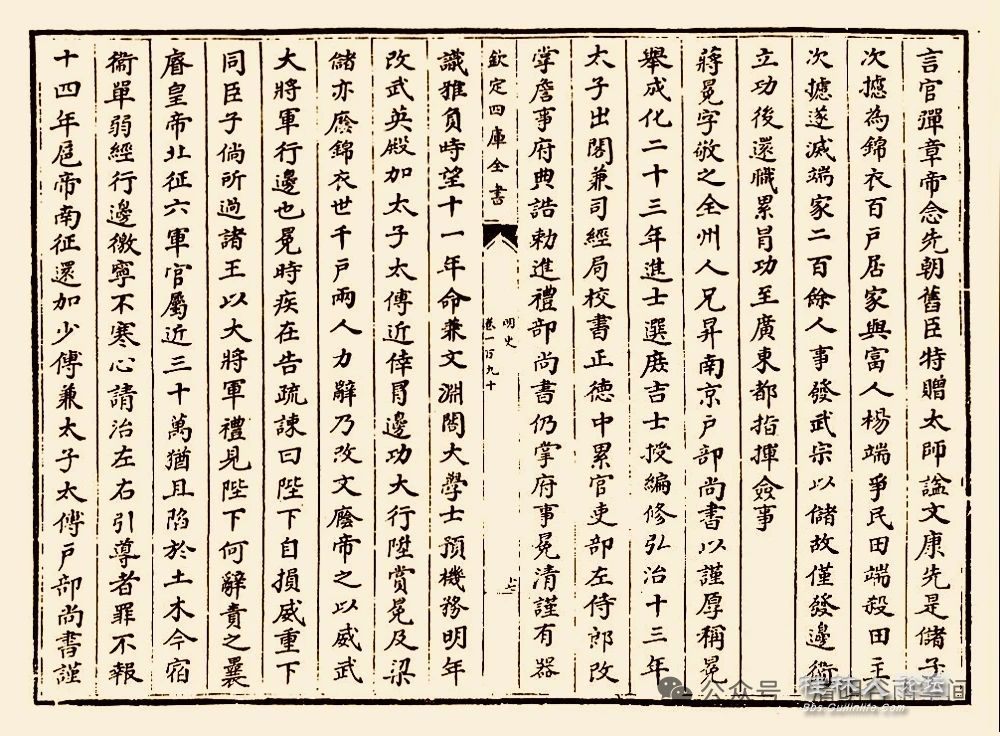 言官彈章帝念先朝舊臣特贈太師諡文康先是儲子
次摅為錦衣百戶居家與富人楊端爭民田端殺田主
次摅遂滅端家二百餘人事發武宗以儲故僅發邊衛
立功後還職累冐功至廣東都指揮僉事
蔣冕字敬之全州人兄昇南京戶部尚書以謹厚稱冕
舉成化二十三年進士選庶吉士授編修弘治十三年
太子出閣兼司經局校書正德中累官吏部左侍郎改
掌詹事府典誥勅進禮部尚書仍掌府事冕清謹有器
欽定四庫全書
明史
卷一百九十
識雅負時望十一年命兼文淵閣大學士預機務明年
改武英殿加太子太傅近倖冐邊功大行陞賞冕及梁
儲亦廕錦衣世千戶兩人力辭乃改文廕帝之以威武
大將軍行邊也冕時疾在告疏諫曰陛下自損威重下
同臣子倘所過諸王以大將軍禮見陛下何辭責之曩
睿皇帝北征六軍官屬近三十萬猶且陷於土木今宿
衞單弱經行邊徼寧不寒心請治左右引導者罪不報
十四年扈帝南征還加少傅兼太子太傅戶部尚書謹
公众号
Bbs.Guilinlife.com